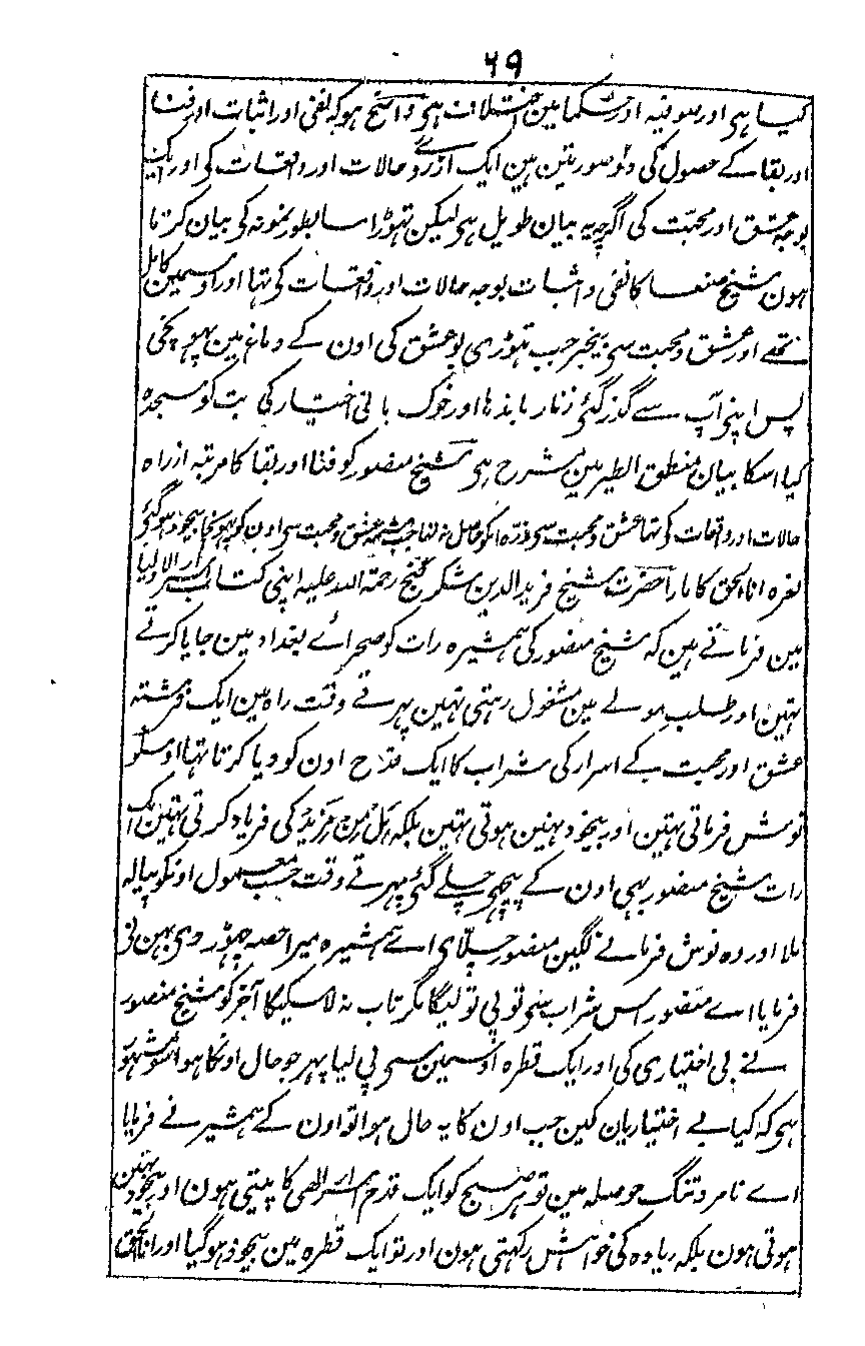 ۶۹
کیا ہی اور صوفیہ اور حکما مین اختلاف ہی واضح ہو کہ نفی اور اثبات اور فنا
اور بقا کے حصول کی دو صورتین ہین ایک از روے حالات اور واقعات کی اور ایک
بوجہ عشق اور محبت کی اگرچہ یہ بیان طویل ہی لیکن تہوڑا سا بطور نمونہ کی بیان کرتا
ہون شیخ صنعا کا نفی و اثبات بوجہ حالات اور واقعات کی تہا اور اوسمین کامل
تھے اور عشق و محبت سی بیخبر جب تہوڑی بو عشق کی اون کے دماغ مین پہونچی
پس اپنی آپ سے گذر گئی زنار باندہا اور خوک بانی اختیار کی بت کو سجدہ
کیا اسکا بیان منطق الطیر مین مشرح ہی شیخ منصور کو فنا اور بقا کا مرتبہ از راہ
حالات اور واقعات کی تہا عشق و محبت سی ذرہ انکو حاصل نہ تہا جب شمہ عشق و محبت سی اون کو پہونچا بیخود ہو گئی
نعرہ انا الحق کا مارا حضرت شیخ فرید الدین شکر گنج رحمۃ اللہ علیہ اپنی کتاب اسرار الاولیا
مین فرماتے ہین کہ شیخ منصور کی ہمشیرہ رات کو صحراے بغداد مین جایا کرتے
تہین اور طلب مولے مین مشغول رہتی تہین پہرتے وقت راہ مین ایک فرشتہ
عشق اور محبت کے اسرار کی شراب کا ایک قدح اون کو دیا کرتا تہا اوسکو
نوش فرماتی تہین اور بیخود نہین ہوتی تہین بلکہ ہَل مِن مَّزِید کی فریاد کرتی تہین ایک
رات شیخ منصور بہی اون کے پیچہی چلے گئی پہرتے وقت حسب معمول اونکو پیالہ
ملا اور وہ نوش فرمانے لگین منصور چلّای اے ہمشیرہ میرا حصہ چہوڑ دی بہن نی
فرمایا اے منصور اس شراب سی تو پی تو لیگا مگر تاب نہ لا سکیگا آخر کو شیخ منصور
نے بی اختیاری کی اور ایک قطرہ اوسمین سی پی لیا پہر جو حال اونکا ہوا سو مشہور
ہی کہ کیا بے اختیاریان کین جب اون کا یہ حال ہوا تو اون کے ہمشیر نے فرمایا
اے نامرد تنگ حوصلہ مین تو ہر صبح کو ایک قدح اسرار الٰہی کا پیتی ہون اور بیخود نہین
ہوتی ہون بلکہ زیادہ کی خواہش رکہتی ہون اور تو ایک قطرہ مین بیخود ہو گیا اور انا الحق